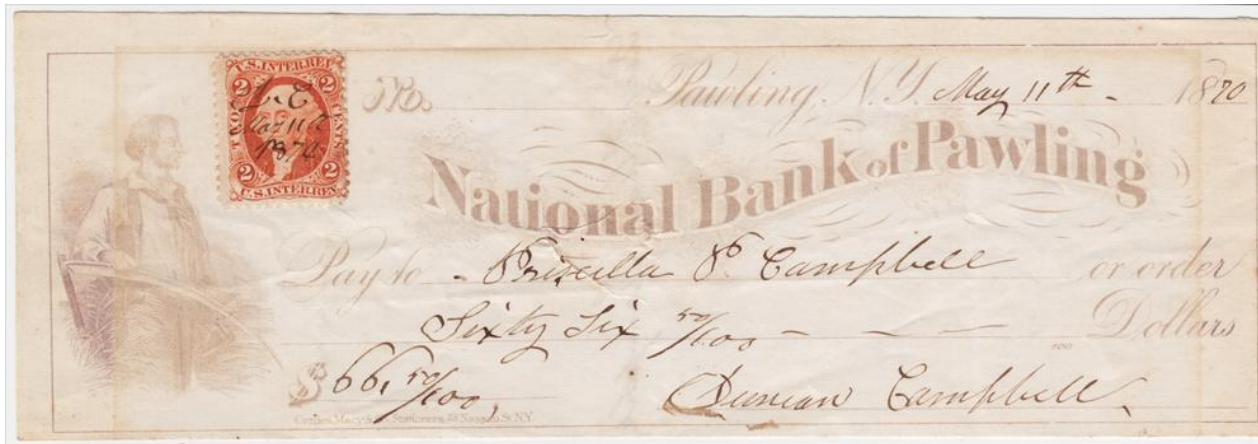 U.S. INTER. REV.
2 2
TWO CENTS
D. C.
May 11th
1870
2 2
U.S. INTER. REV.
No.
Pawling, N.Y. May 11th - 1870
National Bank of Pawling
Pay to - Priscilla P. Campbell or order
Sixty Six 50/100 - - - Dollars
100
$ 66, 50/100,
Duncan Campbell
Stationers, Nassau St. N.Y.